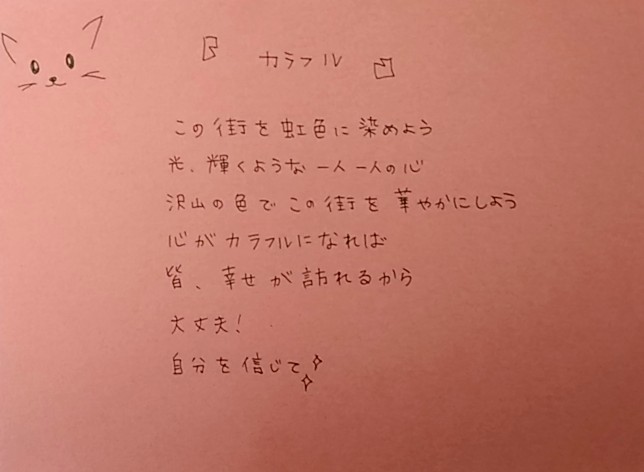 『カラフル』
この街を虹色に染めよう
光、輝くような一人一人の心
沢山の色でこの街を華やかにしよう
心がカラフルになれば
皆、幸せが訪れるから
大丈夫！
自分を信じて